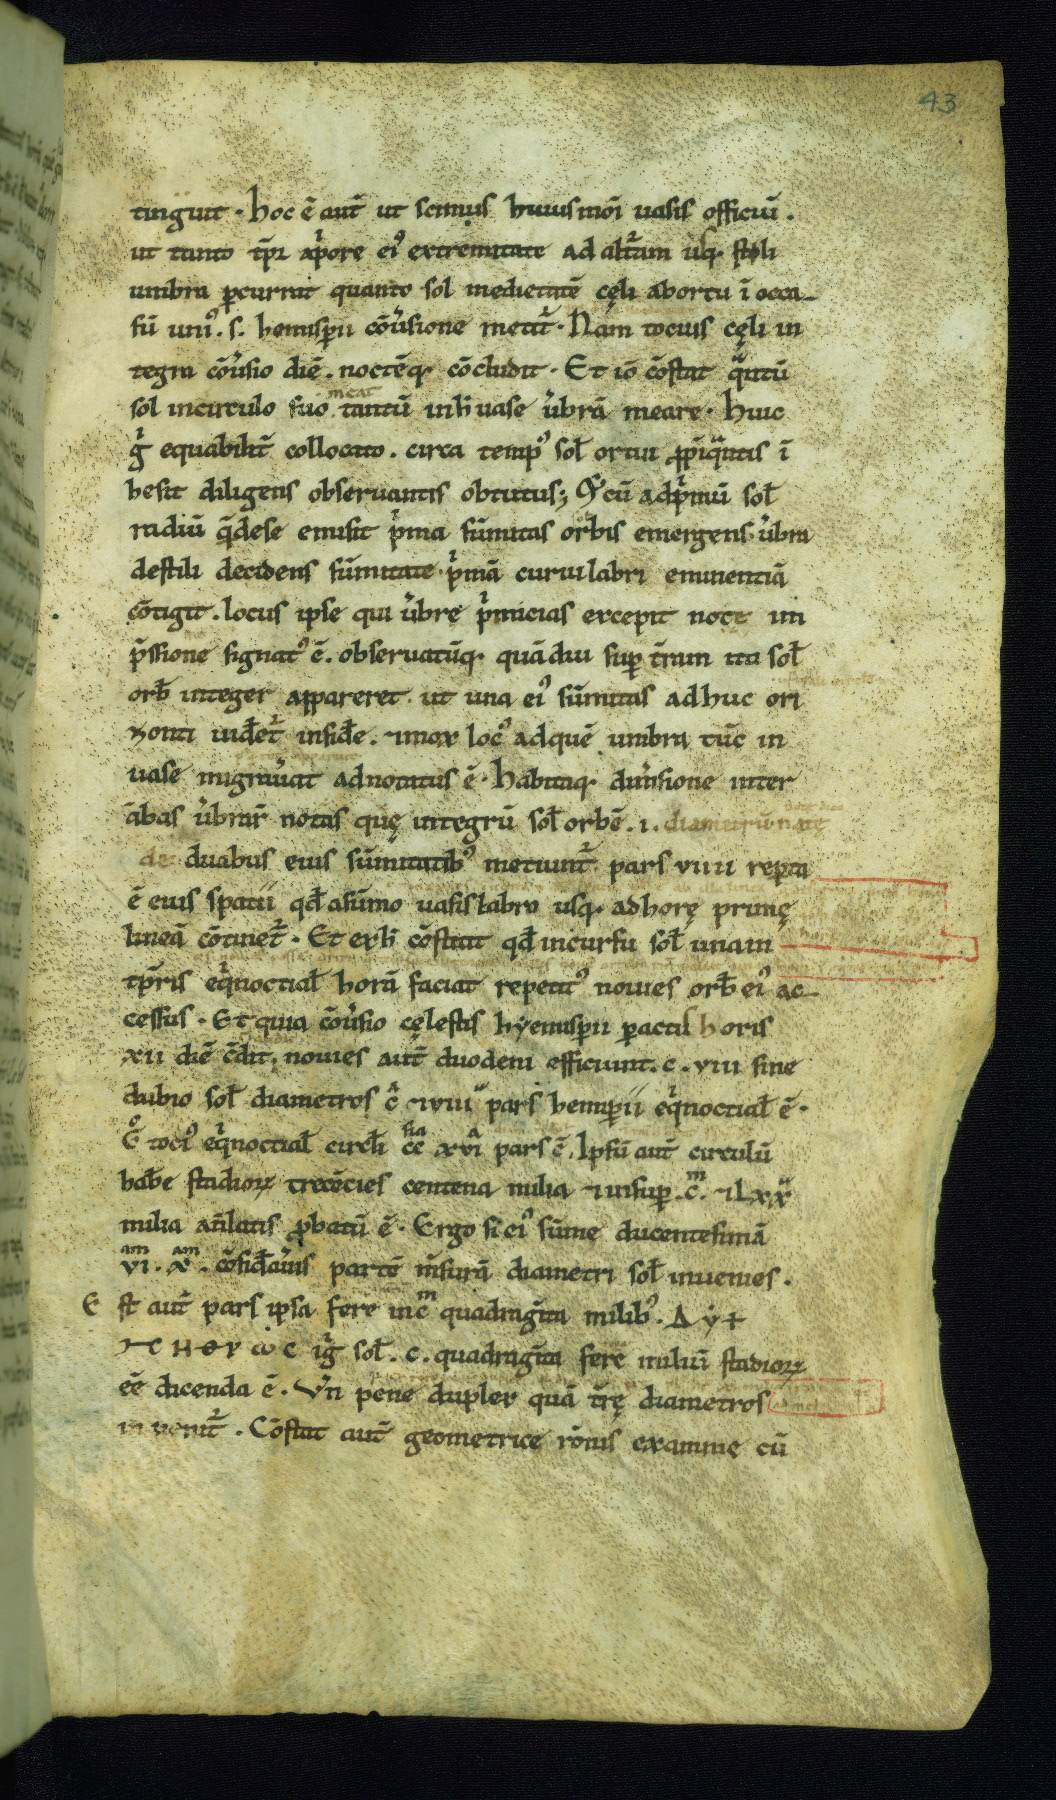 43
tinguit · hoc ē aut̄ ut scimus huiusmoi uasis officiū .
ut tanto tp̄r apͥore eiꝰ extremitate ad alt̄am usq; stili
umbra ꝑcurrat quanto sol medietatē cęli abortu ī occa-
sū uniꝰ . s . hemisperii cōu̓sione metit̃ · Nam tocius cęli in
tegra cōu̓sio diē . noctēq; cōcludit · Et iō cōstat qᷓntū
meat
sol incirculo suo tantū inh̄ uase ūbrā meare · huic
gͥ equabilit̃ collocato . circa tempꝰ sol̄ ortui ꝓpīqᷓntis ī
hesit diligens obseruantis obtutus; cū adpͥmū sol̄
radiū q̄dese emisit pͥma sūmitas orbis emergens · ūbra
destili decidens sūmitate · pͥmā curui labri eminentiā
cōtigit . locus ipse qui ūbrę pͥmicias excepit note im
p̄ssione signatꝰ ē . obseruatūq; quādiu suꝑ t̄ram ita sol̄
orb̄ integer appareret ut una eiꝰ sūmitas adhuc ori
zonti uidet̃ insid̄e . ⁊mox locꝰ adquē umbra tūc in
uase migrau̓at adnotatus ē · habitaq; dim̄sione inter
ābas ūbrar̄ notas quę integrū sol̄ orbē . i . diametrū natę
de duabus eius sūmitatibꝰ metiunt̃ pars viiii repta
ē eius spatii qd̄ asūmo uasis labro usq; adhorę primę
lineā cōtinet̃ · Et exh̄ cōstat qd̄ incursu sol̄ unam
tp̄ris eqͥnoctial̄ horā faciat repetitꝰ nouies orb̄ eiꝰ ac-
cessus · Et quia cōu̓sio cęlestis hyemisperii ꝑactis horis
xii diē c̄dit . nouies aut̄ duodeni efficiunt . c . viii sine
dubio sol̄ diametros c̄ ⁊viii pars hemiꝑii eqͥnoctial̄ ē ·
Ḡ tociꝰ eqͥnoctial̄ circli cc xvi pars ē . Ipsū aut̄ circulū
habe stadioꝝ trecēcies centena milia ⁊insuꝑ . c . ⁊ Lxx
milia añlatis ꝓbatū ē · Ergo si eiꝰ sūme ducentesimā
vi . x . cōsid̄au̓is partē m̄surā diametri sol̄ inuenies .
E st aut̄ pars ipsa fere inc quadragīta milibꝰ . Δ y +
gͥ sol̄ . c . quadragīta fere miliū stadioꝝ
eē dicenda ē . Vn̄ pene dupler quā t̄rę diametros
inuenit̃ . Cōstat aut̄ geometrice rōnis examinę cū